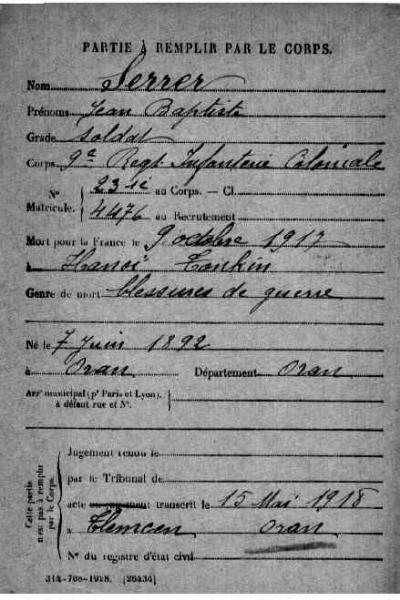 PARTIE À REMPLIR PAR LE CORPS.
Nom Serrer
Prénoms Jean Baptiste
Grade Soldat
Corps 9e Regt Infanterie Coloniale
N° Matricule. au Corps. — Cl.
4476 au Recrutement
Mort pour la France le 9 octobre 1917
à Hanoï Tonkin
Genre de mort blessures de guerre
Né le 7 Juin 1892
à Oran Département Oran
Arrt municipal (pr Paris et Lyon), à défaut rue et N°.
Cette partie n'est pas à remplir par le Corps.
Jugement rendu le
par le Tribunal de
acte transcrit le 15 Mai 1918
à Tlemcen Oran
N° du registre d'état civil
[26434]